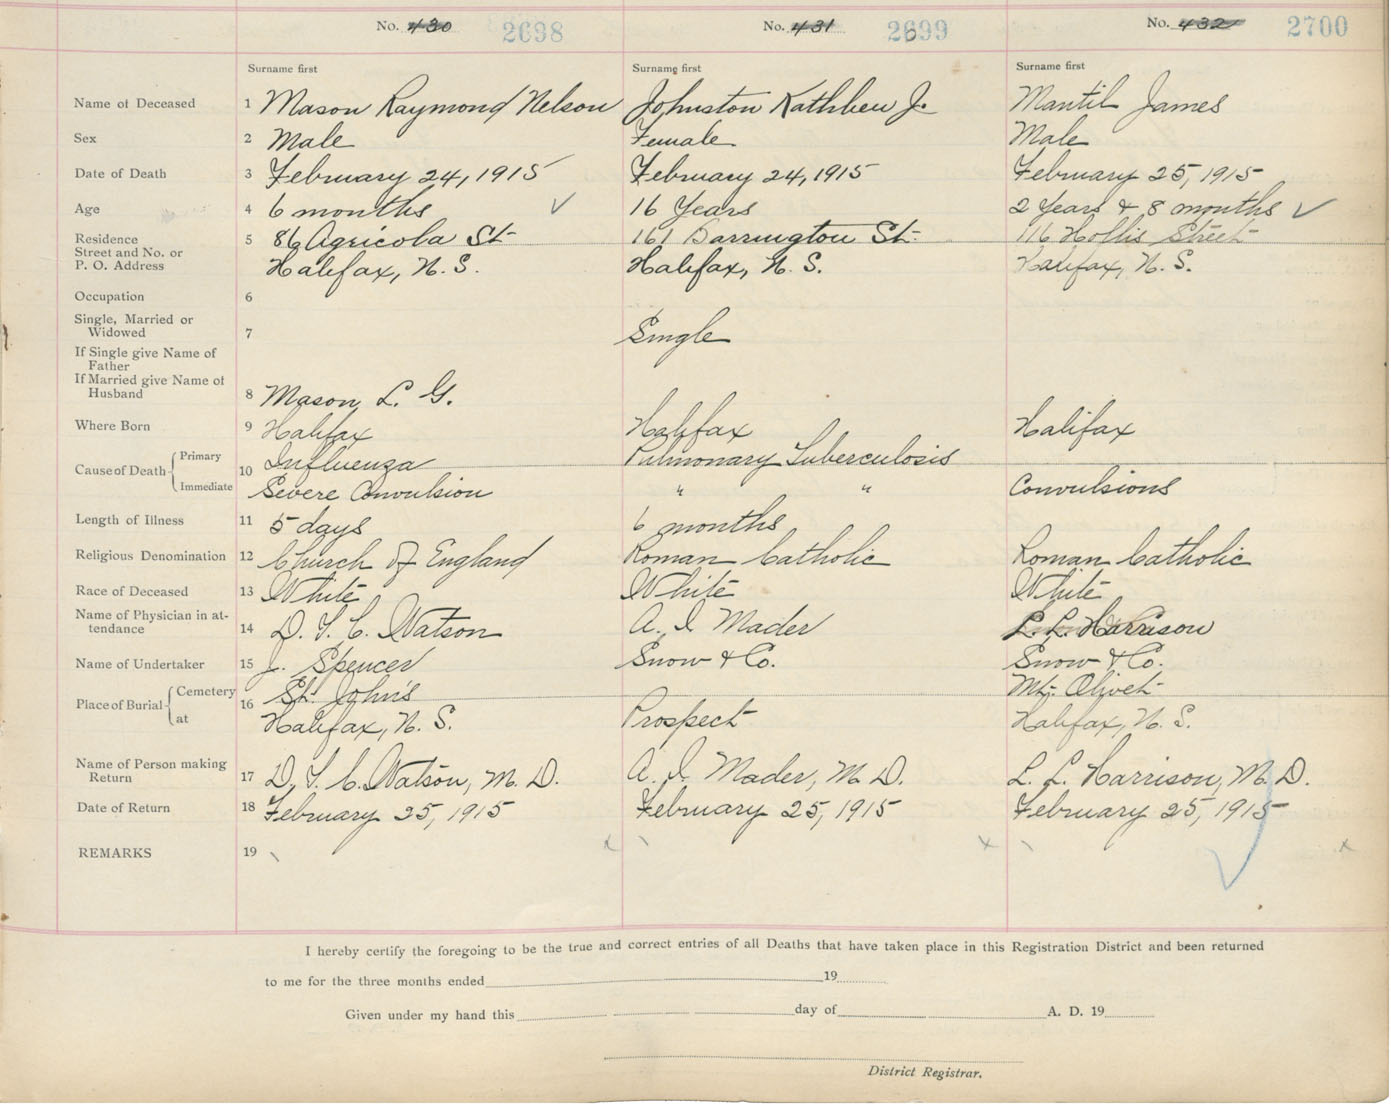 No. 430 2698 No. 431 2699 No. 432 2700
Surname first Surname first Surname first
Name of Deceased 1 Mason Raymond Nelson Johnston Kathleen J. Mantil James
Sex 2 Male Female Male
Date of Death 3 February 24, 1915 February 24, 1915 February 25, 1915
Age 4 6 months 16 Years 2 Years & 8 months
Residence 5 86 Agricola St. 161 Barrington St. 116 Hollis Street
Street and No. or
P. O. Address Halifax, N. S. Halifax, N. S. Halifax, N. S.
Occupation 6
Single, Married or
Widowed 7 Single
If Single give Name of
Father
If Married give Name of
Husband 8 Mason, L. G.
Where Born 9 Halifax Halifax Halifax
Cause of Death Primary 10 Influenza Pulmonary Tuberculosis
Immediate Severe Convulsion " " Convulsions
Length of Illness 11 5 days 6 months
Religious Denomination 12 Church of England Roman Catholic Roman Catholic
Race of Deceased 13 White White White
Name of Physician in at-
tendance 14 D. T. C. Watson A. I Mader L. L. Harrison
Name of Undertaker 15 J. Spencer Snow & Co. Snow & Co.
Place of Burial Cemetery 16 St. John's Mt. Olivet
at Halifax, N. S. Prospect Halifax, N. S.
Name of Person making
Return 17 D. T. C. Watson, M. D. A. I. Mader, M. D. L. L. Harrison, M. D.
Date of Return 18 February 25, 1915 February 25, 1915 February 25, 1915
REMARKS 19
I hereby certify the foregoing to be the true and correct entries of all Deaths that have taken place in this Registration District and been returned
to me for the three months ended 19
Given under my hand this day of A. D. 19
District Registrar.